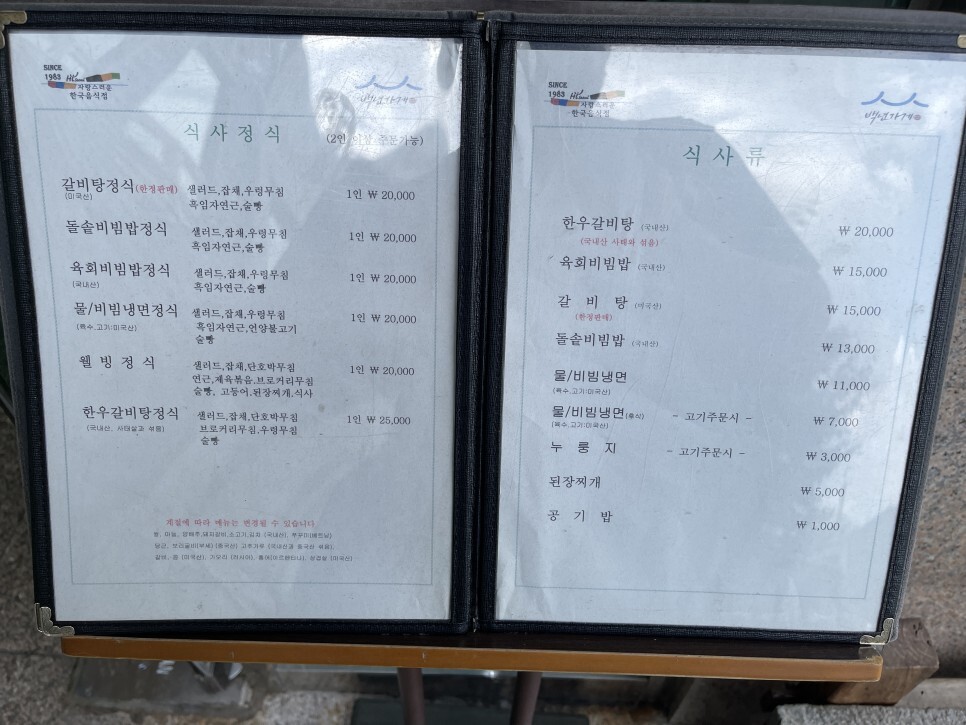 SINCE
1983
자랑스러운
한국음식점
백년가게
식사정식
(2인 이상 주문가능)
갈비탕정식(한정판매) 샐러드,잡채,우렁무침 1인 ₩ 20,000
(미국산) 흑임자연근,술빵
돌솥비빔밥정식 샐러드,잡채,우렁무침 1인 ₩ 20,000
흑임자연근,술빵
육회비빔밥정식 샐러드,잡채,우렁무침 1인 ₩ 20,000
(국내산) 흑임자연근,술빵
물/비빔냉면정식 샐러드,잡채,우렁무침 1인 ₩ 20,000
(육수,고기:미국산) 흑임자연근,언양불고기
술빵
웰빙정식 샐러드,잡채,단호박무침 1인 ₩ 20,000
연근,제육볶음.브로커리무침
술빵, 고등어.된장찌개.식사
한우갈비탕정식 샐러드,잡채,단호박무침 1인 ₩ 25,000
(국내산, 사태살과 섞음) 브로커리무침.우렁무침
술빵
계절에 따라 메뉴는 변경될 수 있습니다
쌀, 마늘, 양배추,돼지갈비,소고기,김치 (국내산), 쭈꾸미(베트남)
당근, 보리굴비(부세) (중국산) 고추가루 (국내산과 중국산 섞음),
갈비, 콩 (미국산), 가오리 (러시아), 홍어(아르헨티나),
SINCE
1983
자랑스러운
한국음식점
백년가게
식사류
한우갈비탕 (국내산) ₩ 20,000
(국내산 사태와 섞음)
육회비빔밥 (국내산) ₩ 15,000
갈비탕 (미국산) ₩ 15,000
(한정판매)
돌솥비빔밥 (국내산) ₩ 13,000
물/비빔냉면 ₩ 11,000
(육수,고기:미국산)
물/비빔냉면(후식) - 고기주문시 - ₩ 7,000
(육수,고기:미국산)
누룽지 - 고기주문시 - ₩ 3,000
된장찌개 ₩ 5,000
공기밥 ₩ 1,000